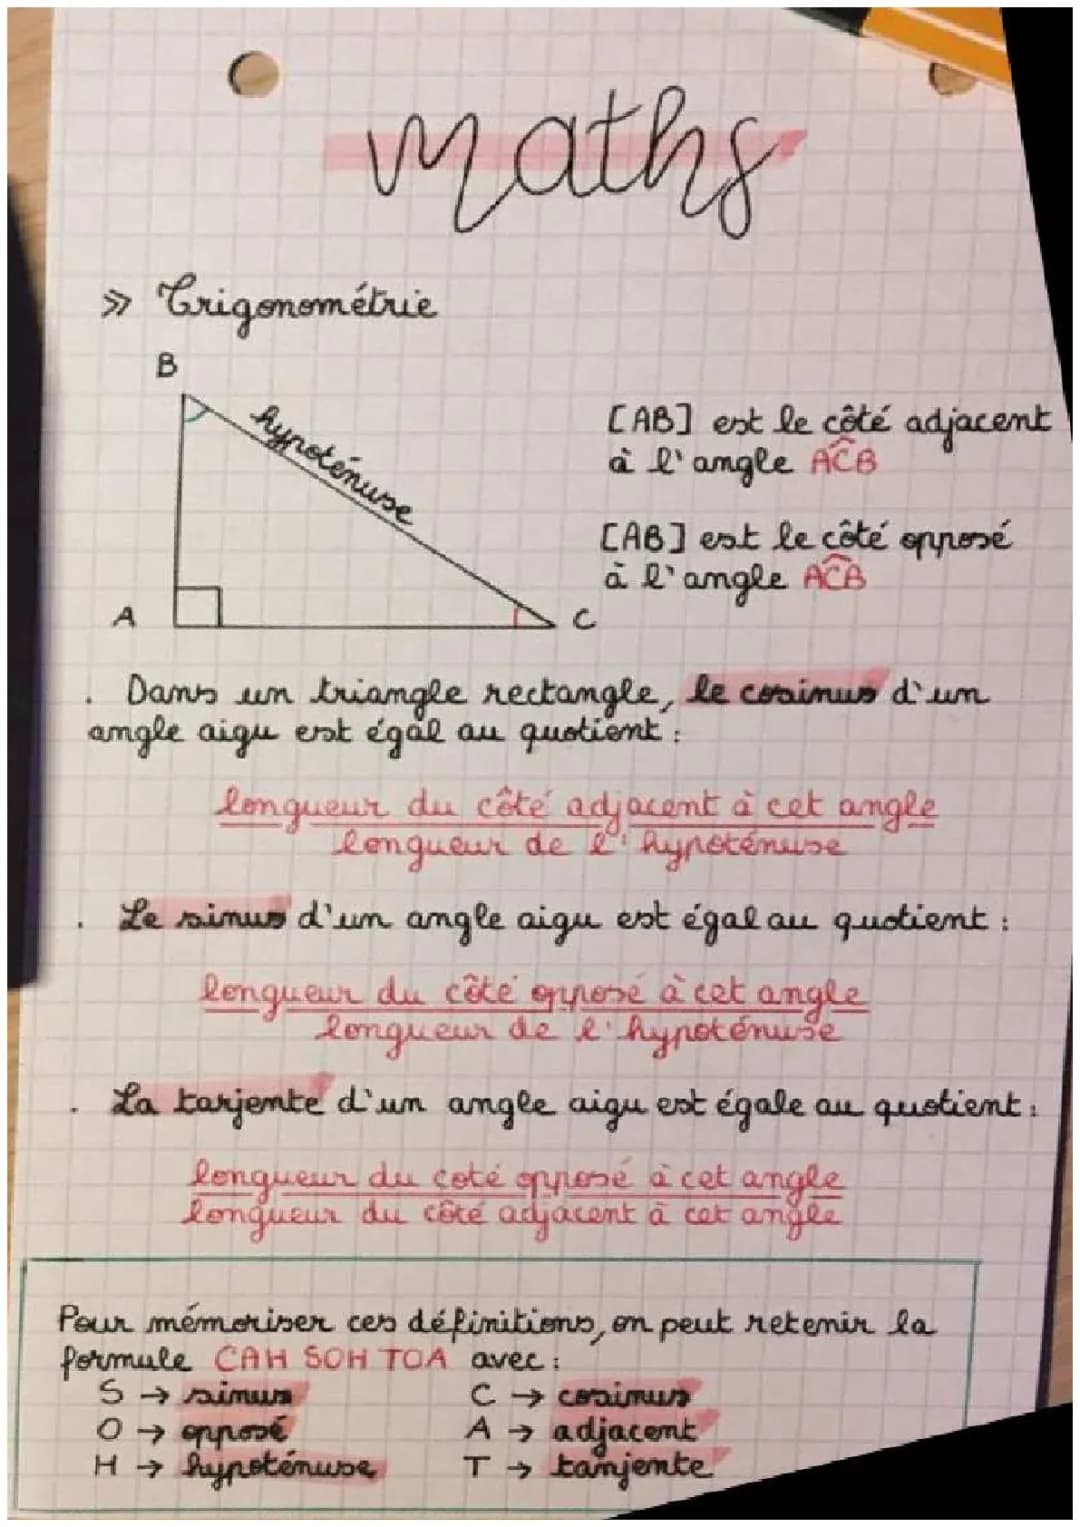 maths
» Trigonométrie
B
hypoténuse
A
C
[AB] est le côté adjacent
à l'angle ACB
[AB] est le côté opposé
à l'angle ACB
. Dans un triangle rectangle, le cosinus d'un
angle aigu est égal au quotient :
longueur du côté adjacent à cet angle
longueur de l'hypoténuse
. Le sinus d'un angle aigu est égal au quotient :
longueur du côté opposé à cet angle
longueur de l'hypoténuse
. La tanjente d'un angle aigu est égale au quotient :
longueur du coté opposé à cet angle
longueur du côté adjacent à cet angle
Pour mémoriser ces définitions, on peut retenir la
formule CAH SOH TOA avec :
S → sinus C → cosinus
O → opposé A → adjacent
H → hypoténuse T → tanjente